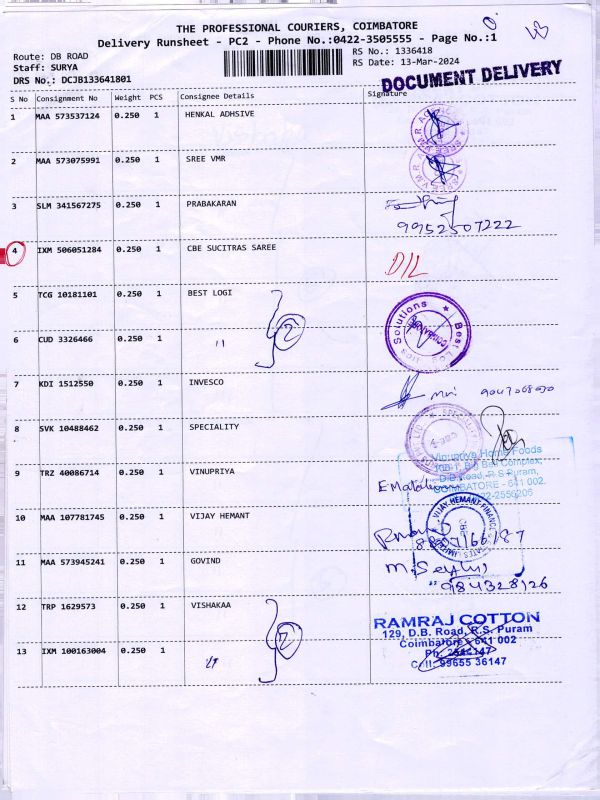 THE PROFESSIONAL COURIERS, COIMBATORE
Delivery Runsheet - PC2 - Phone No.:0422-3505555 - Page No.:1
Route: DB ROAD
Staff: SURYA
DRS No.: DCJB133641801
RS No.: 1336418
RS Date: 13-Mar-2024
DOCUMENT DELIVERY
S No Consignment No Weight PCS Consignee Details Signature
1 MAA 573537124 0.250 1 HENKAL ADHSIVE
2 MAA 573075991 0.250 1 SREE VMR
3 SLM 341567275 0.250 1 PRABAKARAN
9952507222
4 IXM 506051284 0.250 1 CBE SUCITRAS SAREE D/L
5 TCG 10181101 0.250 1 BEST LOGI
2
Solutions Best
6 CUD 3326466 0.250 1 "
7 KDI 1512550 0.250 1 INVESCO
8 SVK 10488462 0.250 1 SPECIALITY
Vinupriya Home Foods
Complex,
D.B.Road, R.S Puram,
COIMBATORE - 641 002.
9 TRZ 40086714 0.250 1 VINUPRIYA
10 MAA 107781745 0.250 1 VIJAY HEMANT
VIJAY HEMANT FINANCE
11 MAA 573945241 0.250 1 GOVIND
9844328126
12 TRP 1629573 0.250 1 VISHAKAA
2
RAMRAJ COTTON
129, D.B. Road, R.S. Puram
Coimbatore - 641 002
Cell: 99655 36147
13 IXM 100163004 0.250 1 "